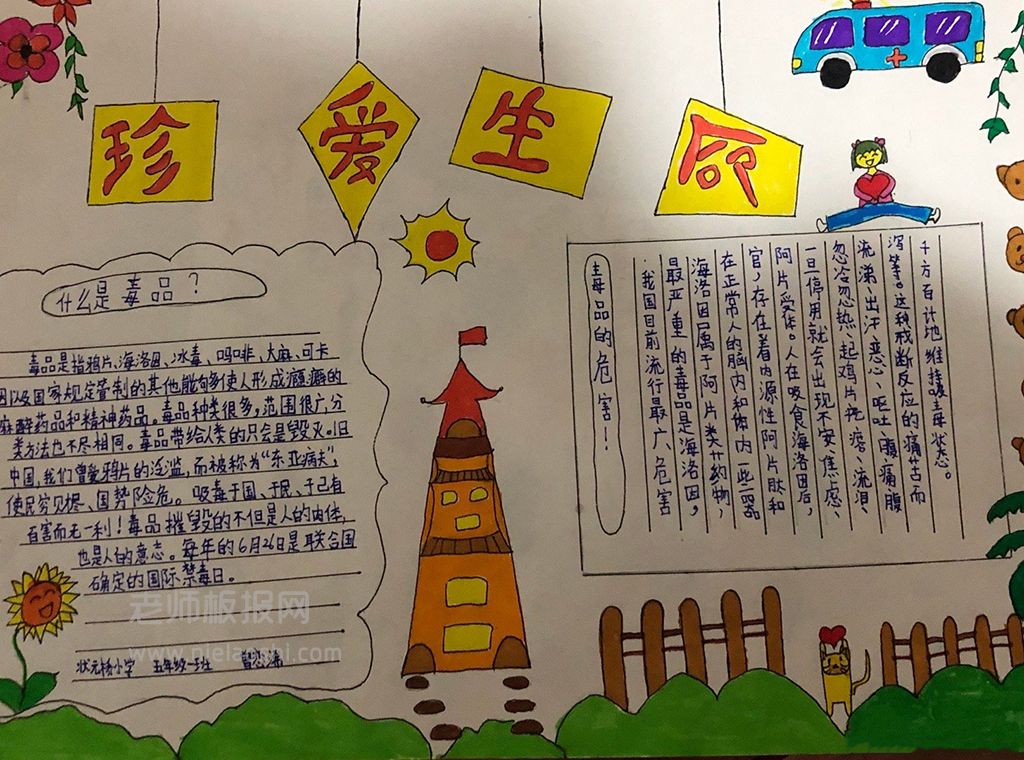 珍爱生命
什么是毒品?
毒品是指鸦片、海洛因、冰毒、吗啡、大麻、可卡
因以及国家规定管制的其他能够使人形成瘾癖的
麻醉药品和精神药品。毒品种类很多,范围很广,分
类方法也不尽相同。毒品带给人类的只会是毁灭。旧
中国,我们曾受鸦片的泛滥,而被称为“东亚病夫”,
使民穷财尽、国势险危。吸毒于国、于民、于己有
百害而无一利!毒品摧毁的不但是人的肉体,
也是人的意志。每年的6月26日是联合国
确定的国际禁毒日。
状元桥小学 五年级一班
毒品的危害!
我国目前流行最广、危害
最严重的毒品是海洛因,
海洛因属于阿片类药物,
在正常人的脑内和体内一些器
官,存在着内源性阿片肽和
阿片受体。人在吸食海洛因后,
一旦停用就会出现不安、焦虑、
忽冷忽热、起鸡片疙瘩、流泪、
流涕、出汗、恶心、呕吐、腹痛腹
泻等。这种戒断反应的痛苦而
千方百计地维持吸毒状态。
老师板报网